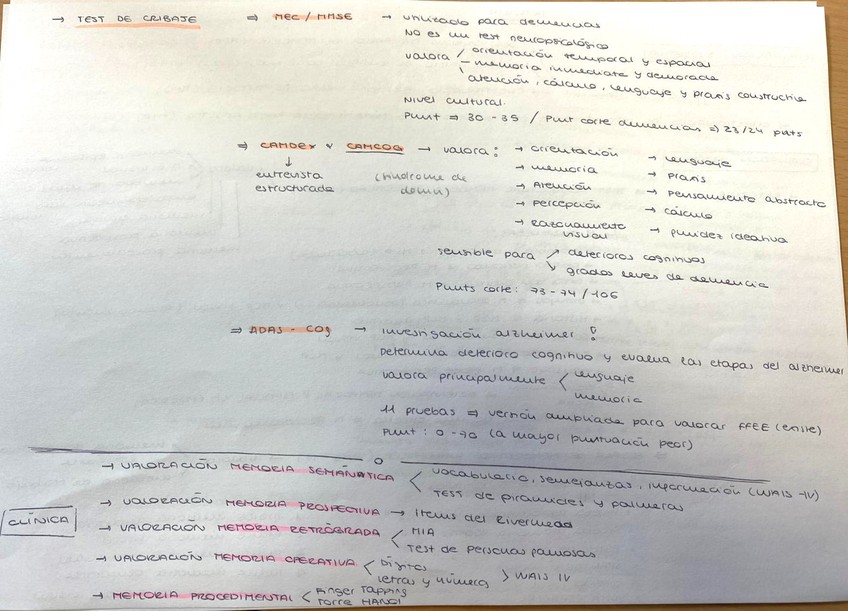 → TEST DE CRIBAJE ⇒ MEC / MMSE → utilizado para demencias
NO es un test neuropsicológico
valora / orientación temporal y espacial
– memoria inmediata y demorada
\ atención, cálculo, lenguaje y praxis constructiva
Nivel cultural.
Punt ⇒ 30 - 35 / Punt corte demencias ⇒ 23/24 punts
⇒ CAMDEX y CAMCOG → valora: → orientación → lenguaje
↓
entrevista (síndrome de → memoria → praxis
estructurada down) → Atención → pensamiento abstracto
→ percepción → cálculo
→ Razonamiento visual → fluidez ideativa
sensible para ↗ deterioros cognitivos
↘ grados leves de demencia
Punts corte: 73 - 74 / 106
⇒ ADAS - COg → investigación alzheimer!
Determina deterioro cognitivo y evalua las etapas del alzheimer
valora principalmente < lenguaje
memoria
11 pruebas ⇒ versión ampliada para valorar FFEE (entre)
Punt: 0 - 70 (a mayor puntuación peor)
CLÍNICA
→ VALORACIÓN MEMORIA SEMÁNATICA < vocabulario, semejanzas, información (WAIS - IV)
TEST de piramides y palmeras
→ VALORACIÓN MEMORIA PROSPECTIVA → Items del Rivermead
→ VALORACIÓN MEMORIA RETRÓGRADA < MIA
Test de personas famosas
→ VALORACIÓN MEMORIA OPERATIVA < Digitos
letras y números > WAIS IV
→ MEMORIA PROCEDIMENTAL < Finger TAPPING
Torre HANOI